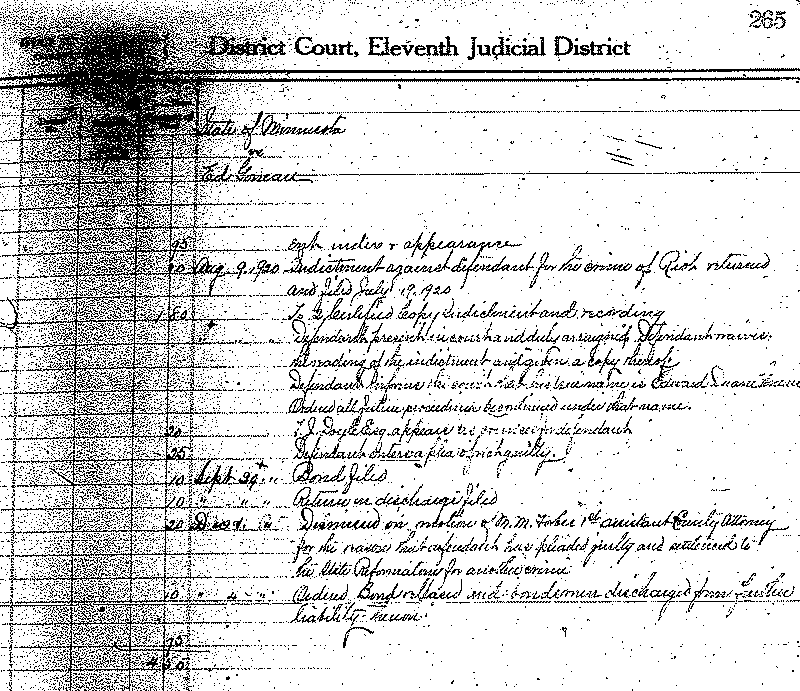 265
District Court, Eleventh Judicial District
State of Minnesota
vs
Ed
95 ent. index & appearance
90 Aug. 9, 1920 Indictment against defendant for the crime of Riot returned
and filed July 19, 1920
1 80 To Certified Copy Indictment and recording
" " Defendant present in court and duly arraigned. Defendant waives
the reading of the indictment and given a copy thereof
Defendant informs the court that his true name is Edward
Ordered all future proceedings be continued under that name.
20 Esq. appears as counsel for defendant
25 Defendant enters a plea of not guilty.
10 Sept 29th " Bond filed
10 " " " Return on discharge filed
20 Dec 4. " Dismissed on motion of 1st assistant County Attorney
for the reason that defendant has pleaded guilty and sentenced to
the State Reformatory for another crime
10 " 4 " Ordered Bond released and bondsmen discharged from further
liability thereon.
95
4 50